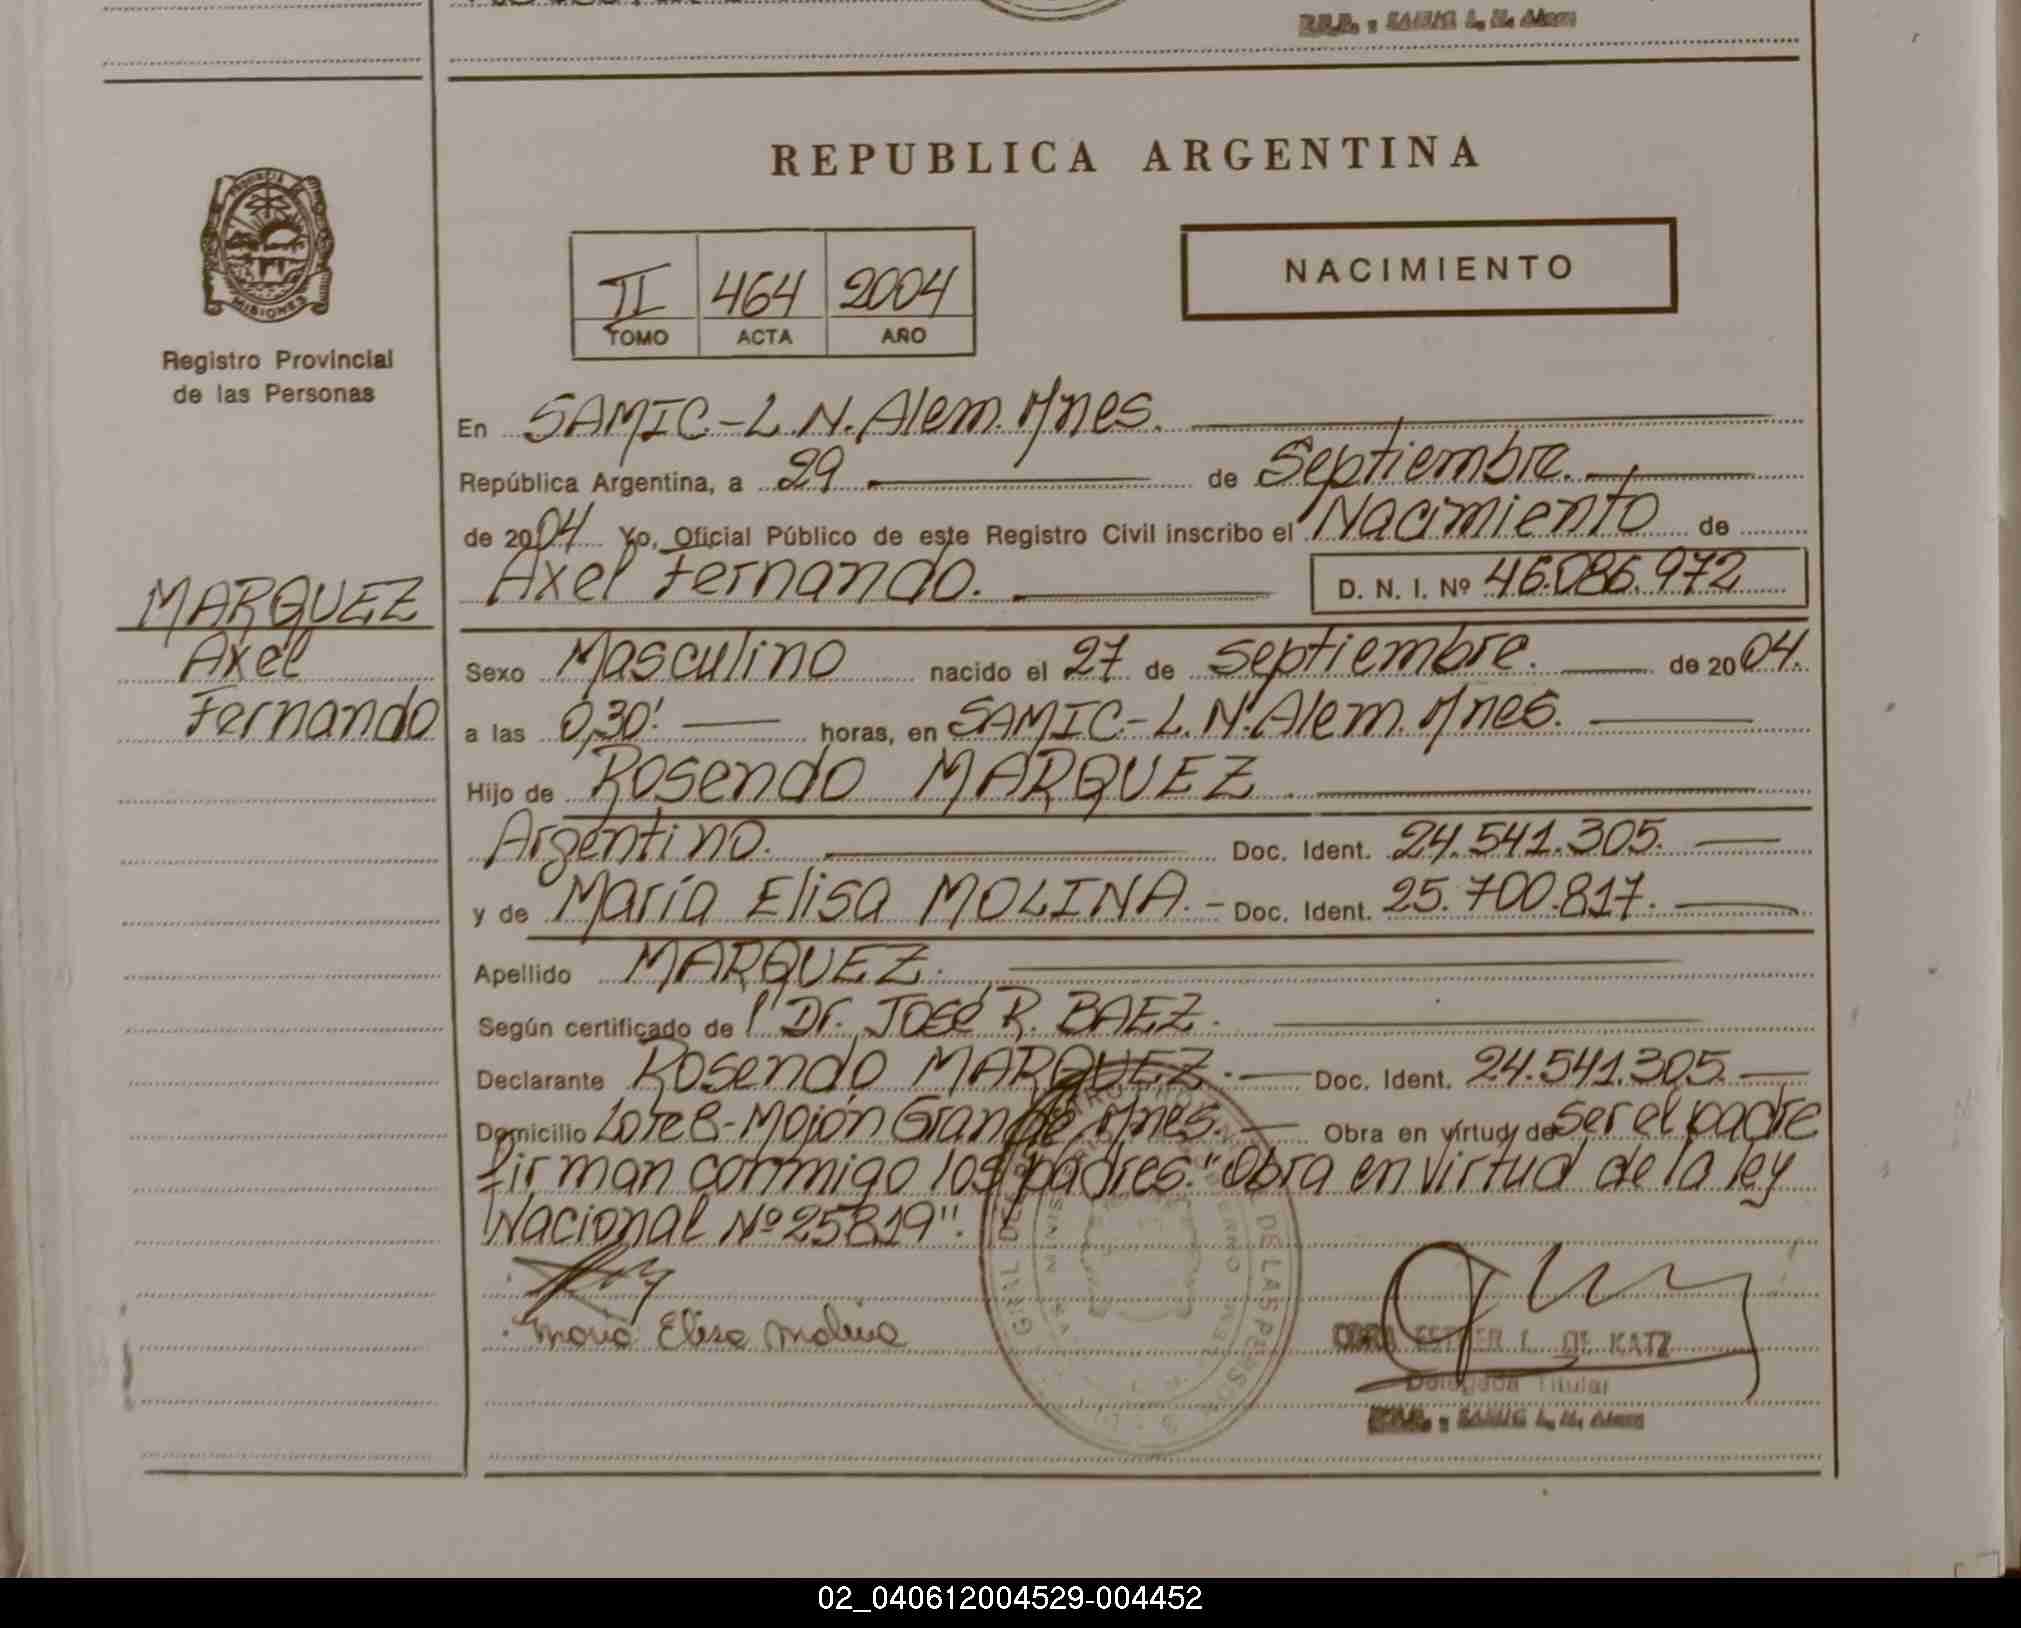 R.P.P. - SAMIC L. N. Alem
REPUBLICA ARGENTINA
PROVINCIA DE
MISIONES
Registro Provincial
de las Personas
II 464 2004
TOMO ACTA AÑO
NACIMIENTO
En SAMIC-L.N.Alem. Mnes.
República Argentina, a 29 de Septiembre.
de 2004 Yo, Oficial Público de este Registro Civil inscribo el Nacimiento de
Axel Fernando. D. N. I. Nº 46.086.972
MARQUEZ
Axel
Fernando
Sexo Masculino nacido el 27 de Septiembre. de 2004.
a las 0,30' horas, en SAMIC-L.N.Alem. Mnes.
Hijo de Rosendo MARQUEZ
Argentino. Doc. Ident. 24.541.305.
y de María Elisa MOLINA.- Doc. Ident. 25.700.817.
Apellido MARQUEZ.
Según certificado de l Dr. José R. BAEZ.
Declarante Rosendo MARQUEZ.- Doc. Ident. 24.541.305.
Domicilio Lote 8-Mojón Grande, Mnes. Obra en virtud de ser el padre
firman conmigo los padres. "Obra en virtud de la ley
Nacional Nº 25819".
Maria Elisa Molina
ESTHER L. DE KATZ
Delegada Titular
R.P.P. - SAMIC L. N. Alem
02_040612004529-004452